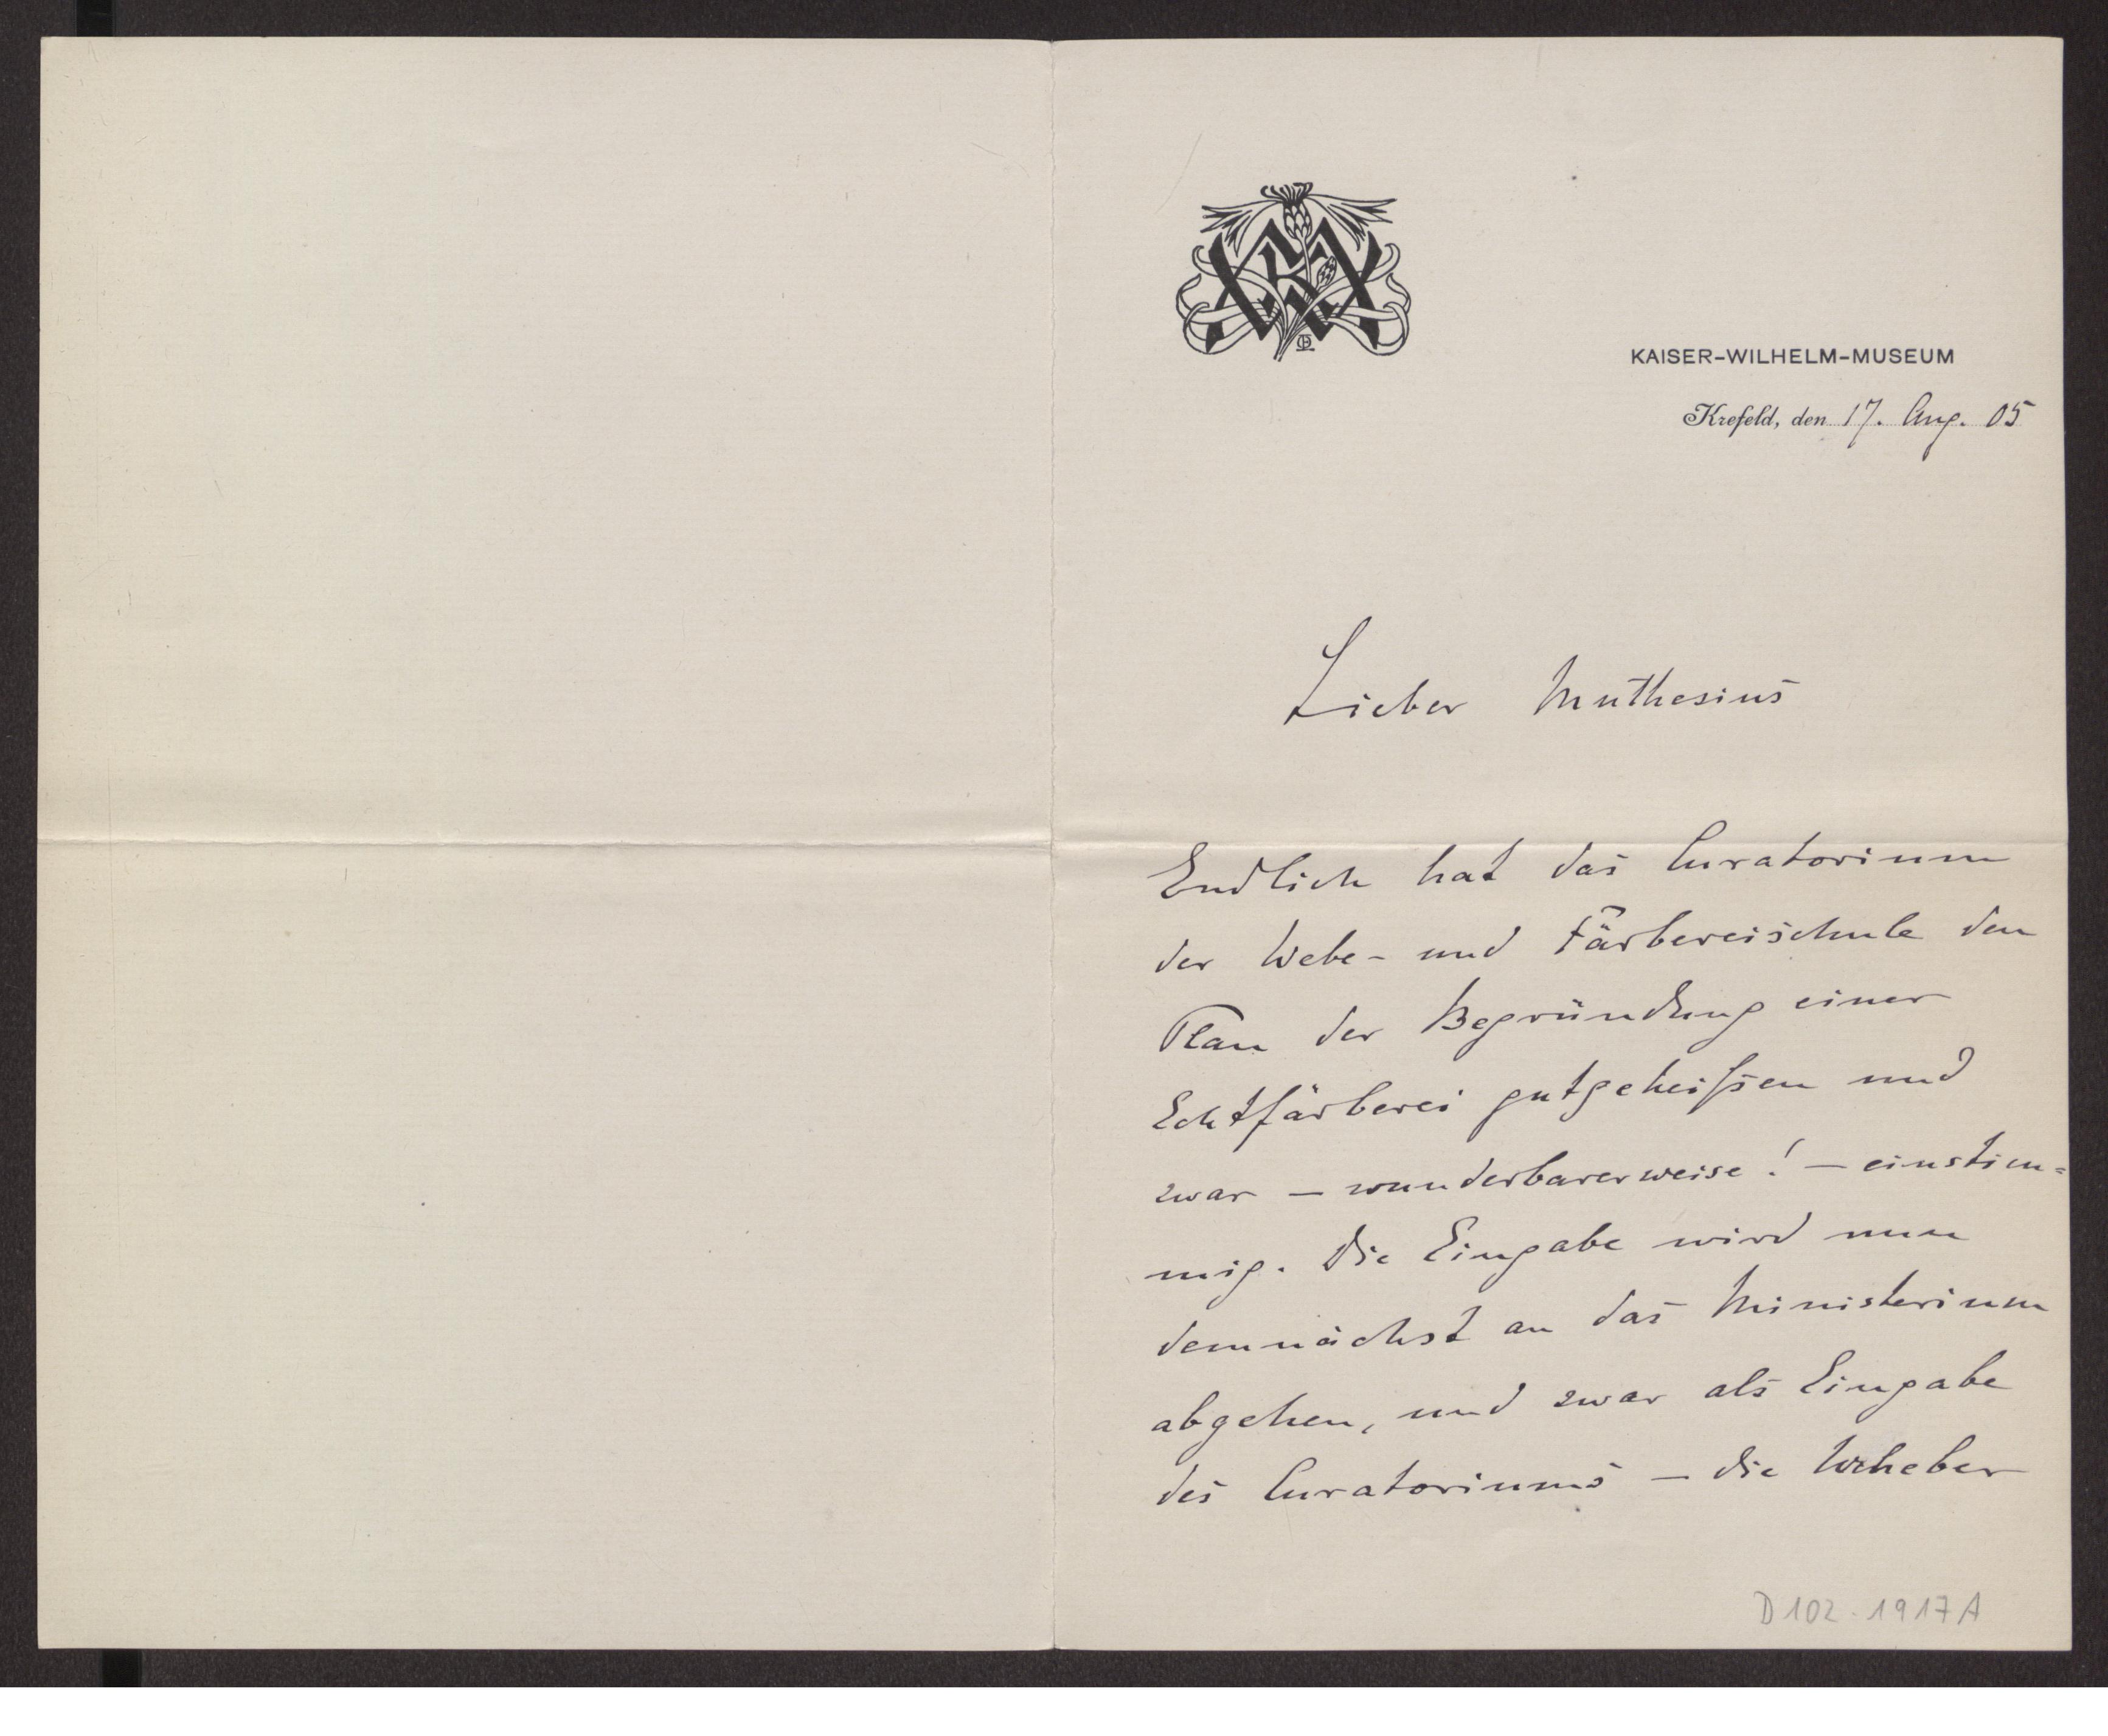 KAISER-WILHELM-MUSEUM
Krefeld, den 17. Aug. 05
Lieber Muthesius
Endlich hat das Curatorium
der Webe- und Färbereischule den
Plan der Begründung einer
Echtfärberei gutgeheißen und
zwar – wunderbarerweise! – einstim=
mig. Die Eingabe wird nun
demnächst an das Ministerium
abgehen, und zwar als Eingabe
des Curatoriums – die Urheber
D102-1917A